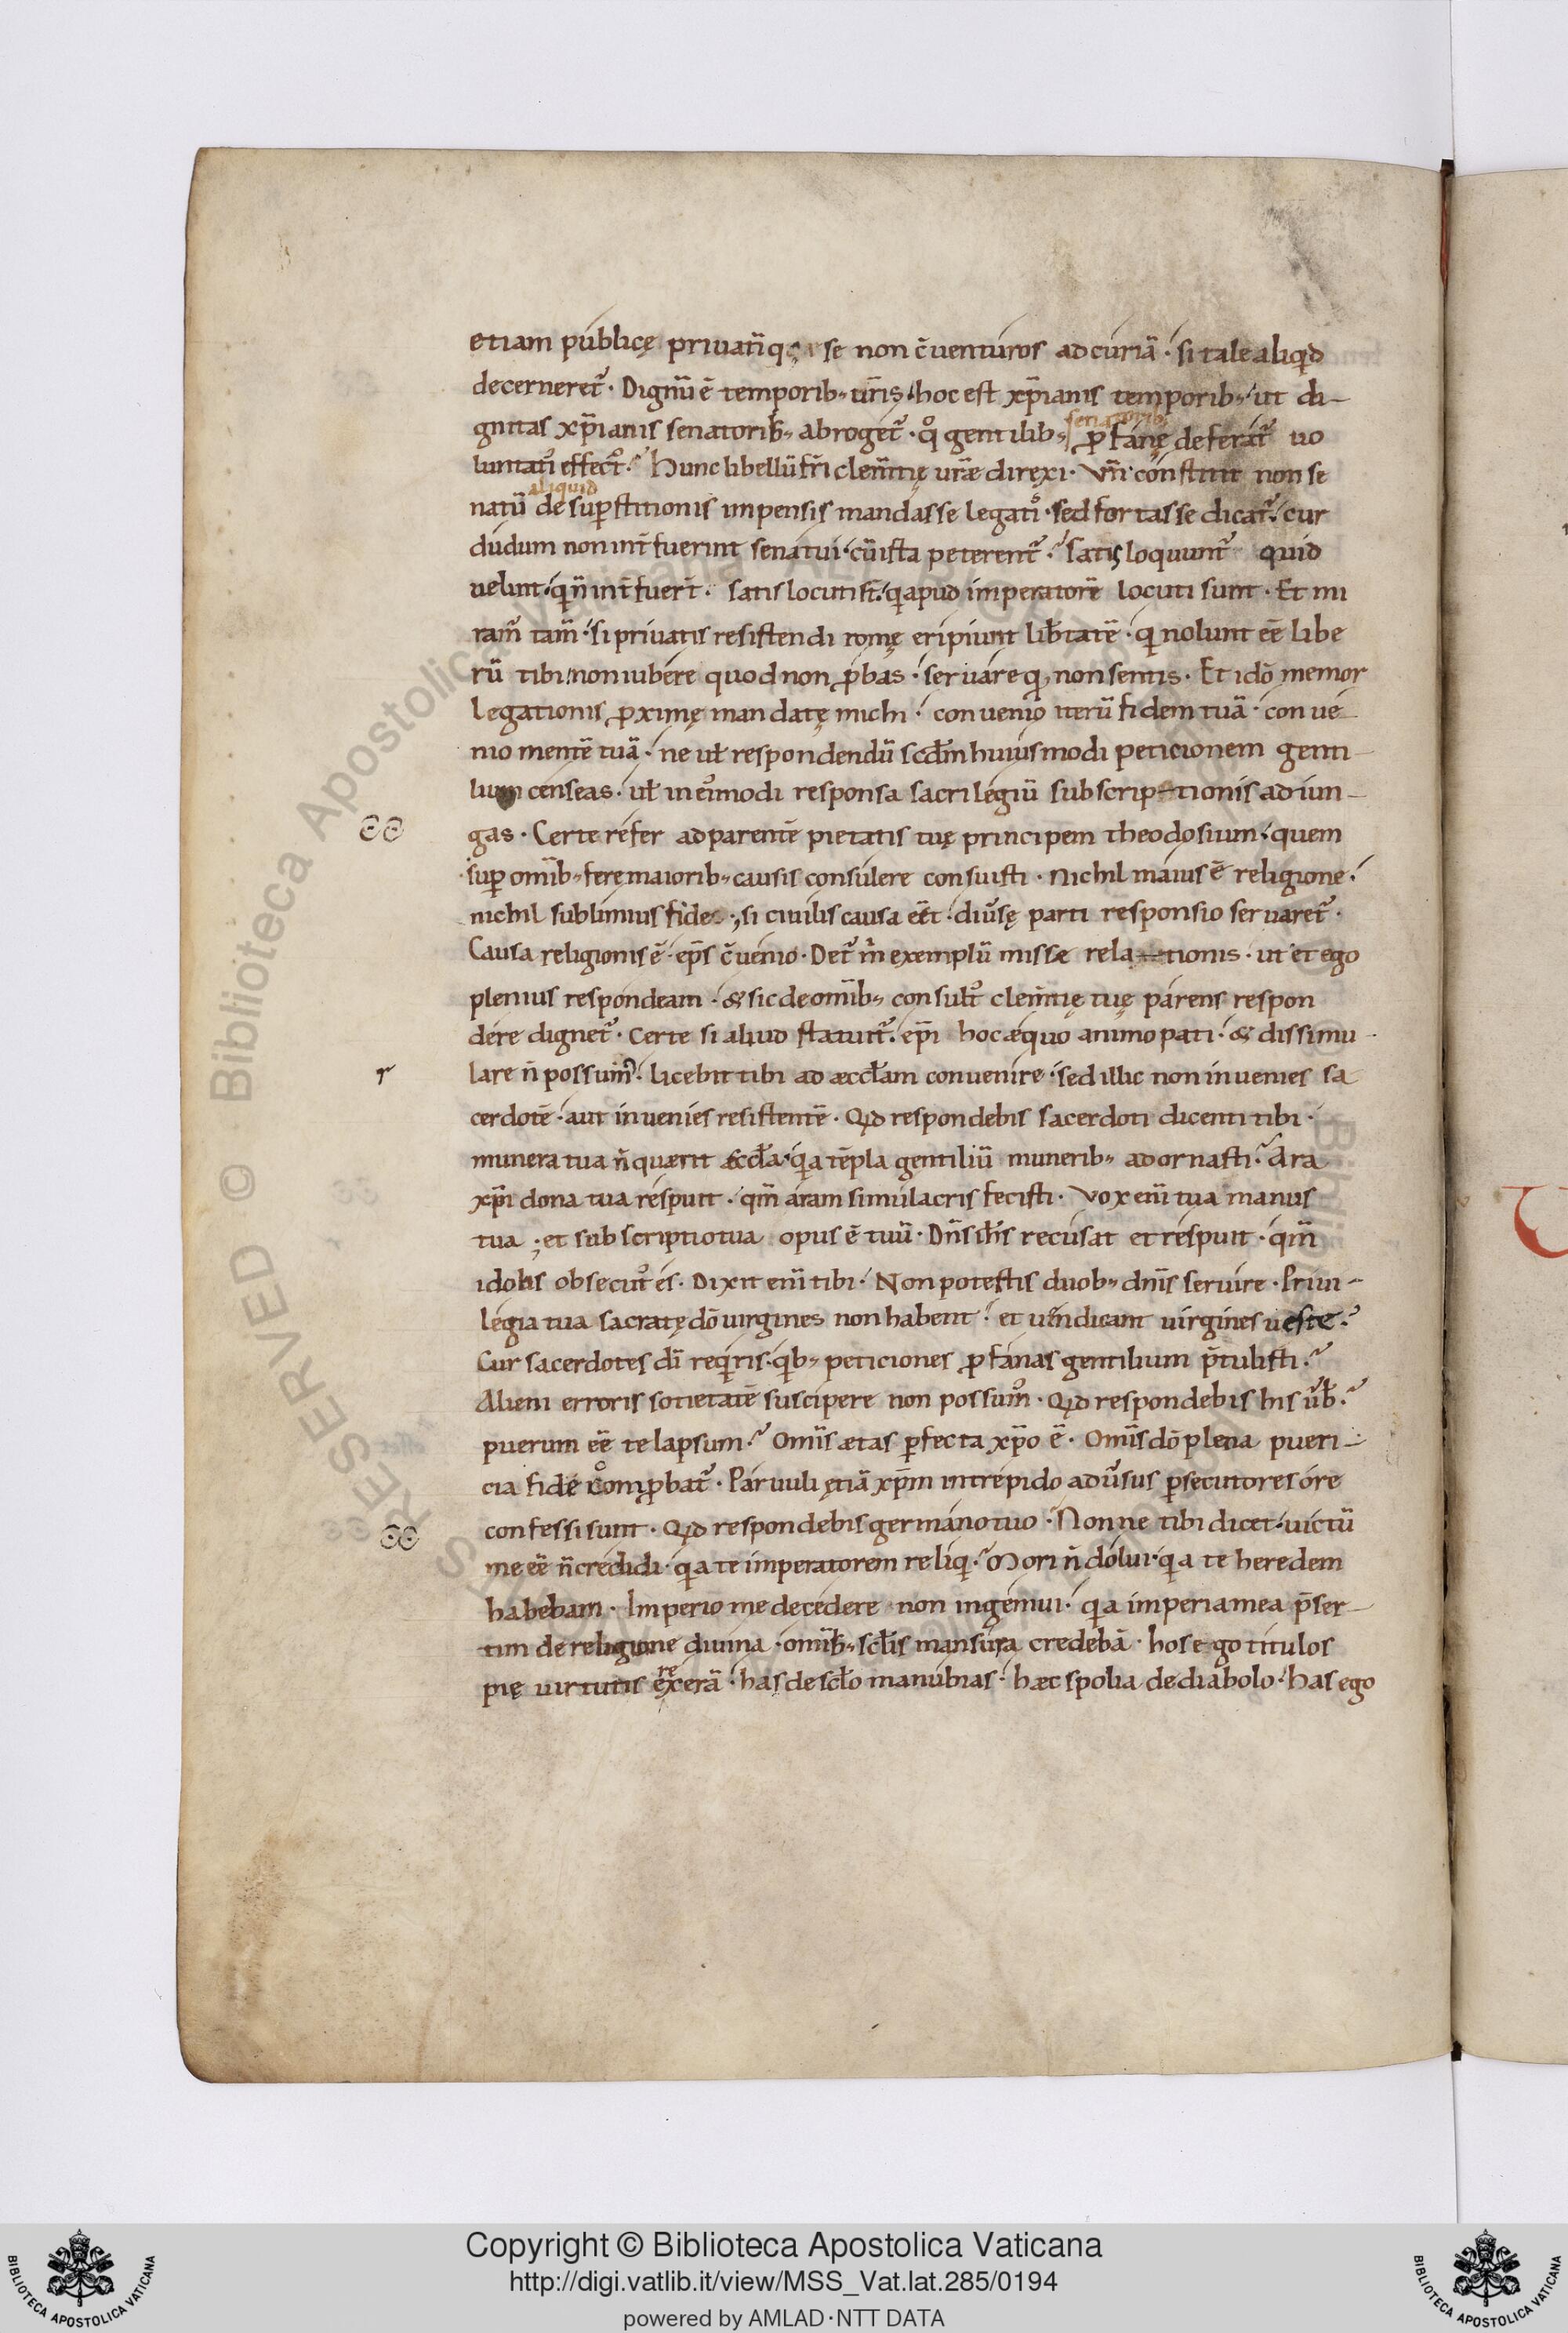 etiam publicę priuati͂q; se non c̄uenturos ad curiā · si tale aliqid
decerneret᷒ · Dignū ē temporib; ur̄is · hoc est xp̄ianis temporib; · ut di-
gnitas xp̄ianis senatorib; abroget᷒ · qͦ gentilib; senatorib; ꝓfanę deferat᷒ uo
luntati effect᷒ · Hunc libellū fr̄i clem̄tię uræ direxi · Vn̄ constitit non se
natū aliquid de suꝑstitionis impensis mandasse legatͦ · sed fortasse dicat᷒ · cur
dudum non int̄fuerint senatui · cū ista peterent᷒ · Satis loquunt᷒ quid
uelint · qi n̄ int̄fuer̄t · satis locuti st̄ · qi apud imperatorē locuti sunt · Et mi
ram̄ tam̄ · si priuatis resistendi romę eripiunt lib̄tatē · qi nolunt eē libe
rū tibi non iubere quod non ꝓbas · seruare q; non sentis · Et idō memor
legationis ꝓximę mandatę michi · conuenio iterū fidem tuā · conue-
nio mentē tuā · ne uł respondendū scd̄m huiusmodi peticionem genti-
lium censeas · uł in ei᷒modi responsa sacrilegiū subscriptionis adiun-
gas · Certe refer ad parentē pietatis tuę principem theodosium · quem
suꝑ omīb; ferę maiorib; causis consulere consuisti · Nichil maius ē religione ·
nichil sublimius fide · si ciuilis causa eēt · diu̓sę parti responsio seruaret᷒ ·
Causa religionis ē · ep̄s c̄uenio · Det᷒ m̓ exemplū missę relationis · ut et ego
plenius respondeam · & sic de omīb; consult᷒ clem̄tię tuę parens respon
dere dignet᷒ · Certe si aliud statuit᷒ · ep̄i hoc æquo animo pati · & dissimu-
lare n̄ possum᷒ · licebit tibi ad æccłam conuenire · sed illic non inuenies sa
cerdotē · aut inuenies resistentē · Qid respondebis sacerdoti dicenti tibi ·
munera tua n̄ quærit æccła · qi a tēpla gentiliū munerib; adornasti · Ara
xp̄i dona tua respuit · qm̄ aram simulacris fecisti · Vox eni͂ tua manus
tua ; et subscriptio tua opus ē tuū · Dn̄s ih̄s recusat et respuit · qm̄
idolis obsecut᷒ es · Dixit eni͂ tibi · Non potestis duob; dn̄is seruire · Priui-
legia tua sacratę dō uirgines non habent · et uindicant uirgines ueste ·
Cur sacerdotes dī reqiris · qib; peticiones ꝓfanas gentilium p̄tulisti ·
Alieni erroris sotietatē suscipere non possum᷒ · Qid respondebis his u̓b ·
puerum eē te lapsum · Omīs ætas ꝑfecta xp̄o ē · Omīs dō plena pueri-
cia fide comꝓbat᷒ · Paruuli ętiā xp̄m intrepido adu̓sus ꝑsecutores ore
confessi sunt · Qid respondebis germano tuo · Nonne tibi dicet · uictū
me eē n̄ credidi · qi a te imperatorem reliqi · Mori n̄ dolui · qi a te heredem
habebam · Imperio me decedere non ingemui · qi a imperia mea p̄ser-
tim de religione diuina · omīb; scłis mansura credebā · hos ego titulos
pię uirtutis erexerā · has de scło manubias · hæc spolia de diabolo · has ego
Copyright © Biblioteca Apostolica Vaticana
http://digi.vatlib.it/view/MSS_Vat.lat.285/0194
powered by AMLAD·NTT DATA